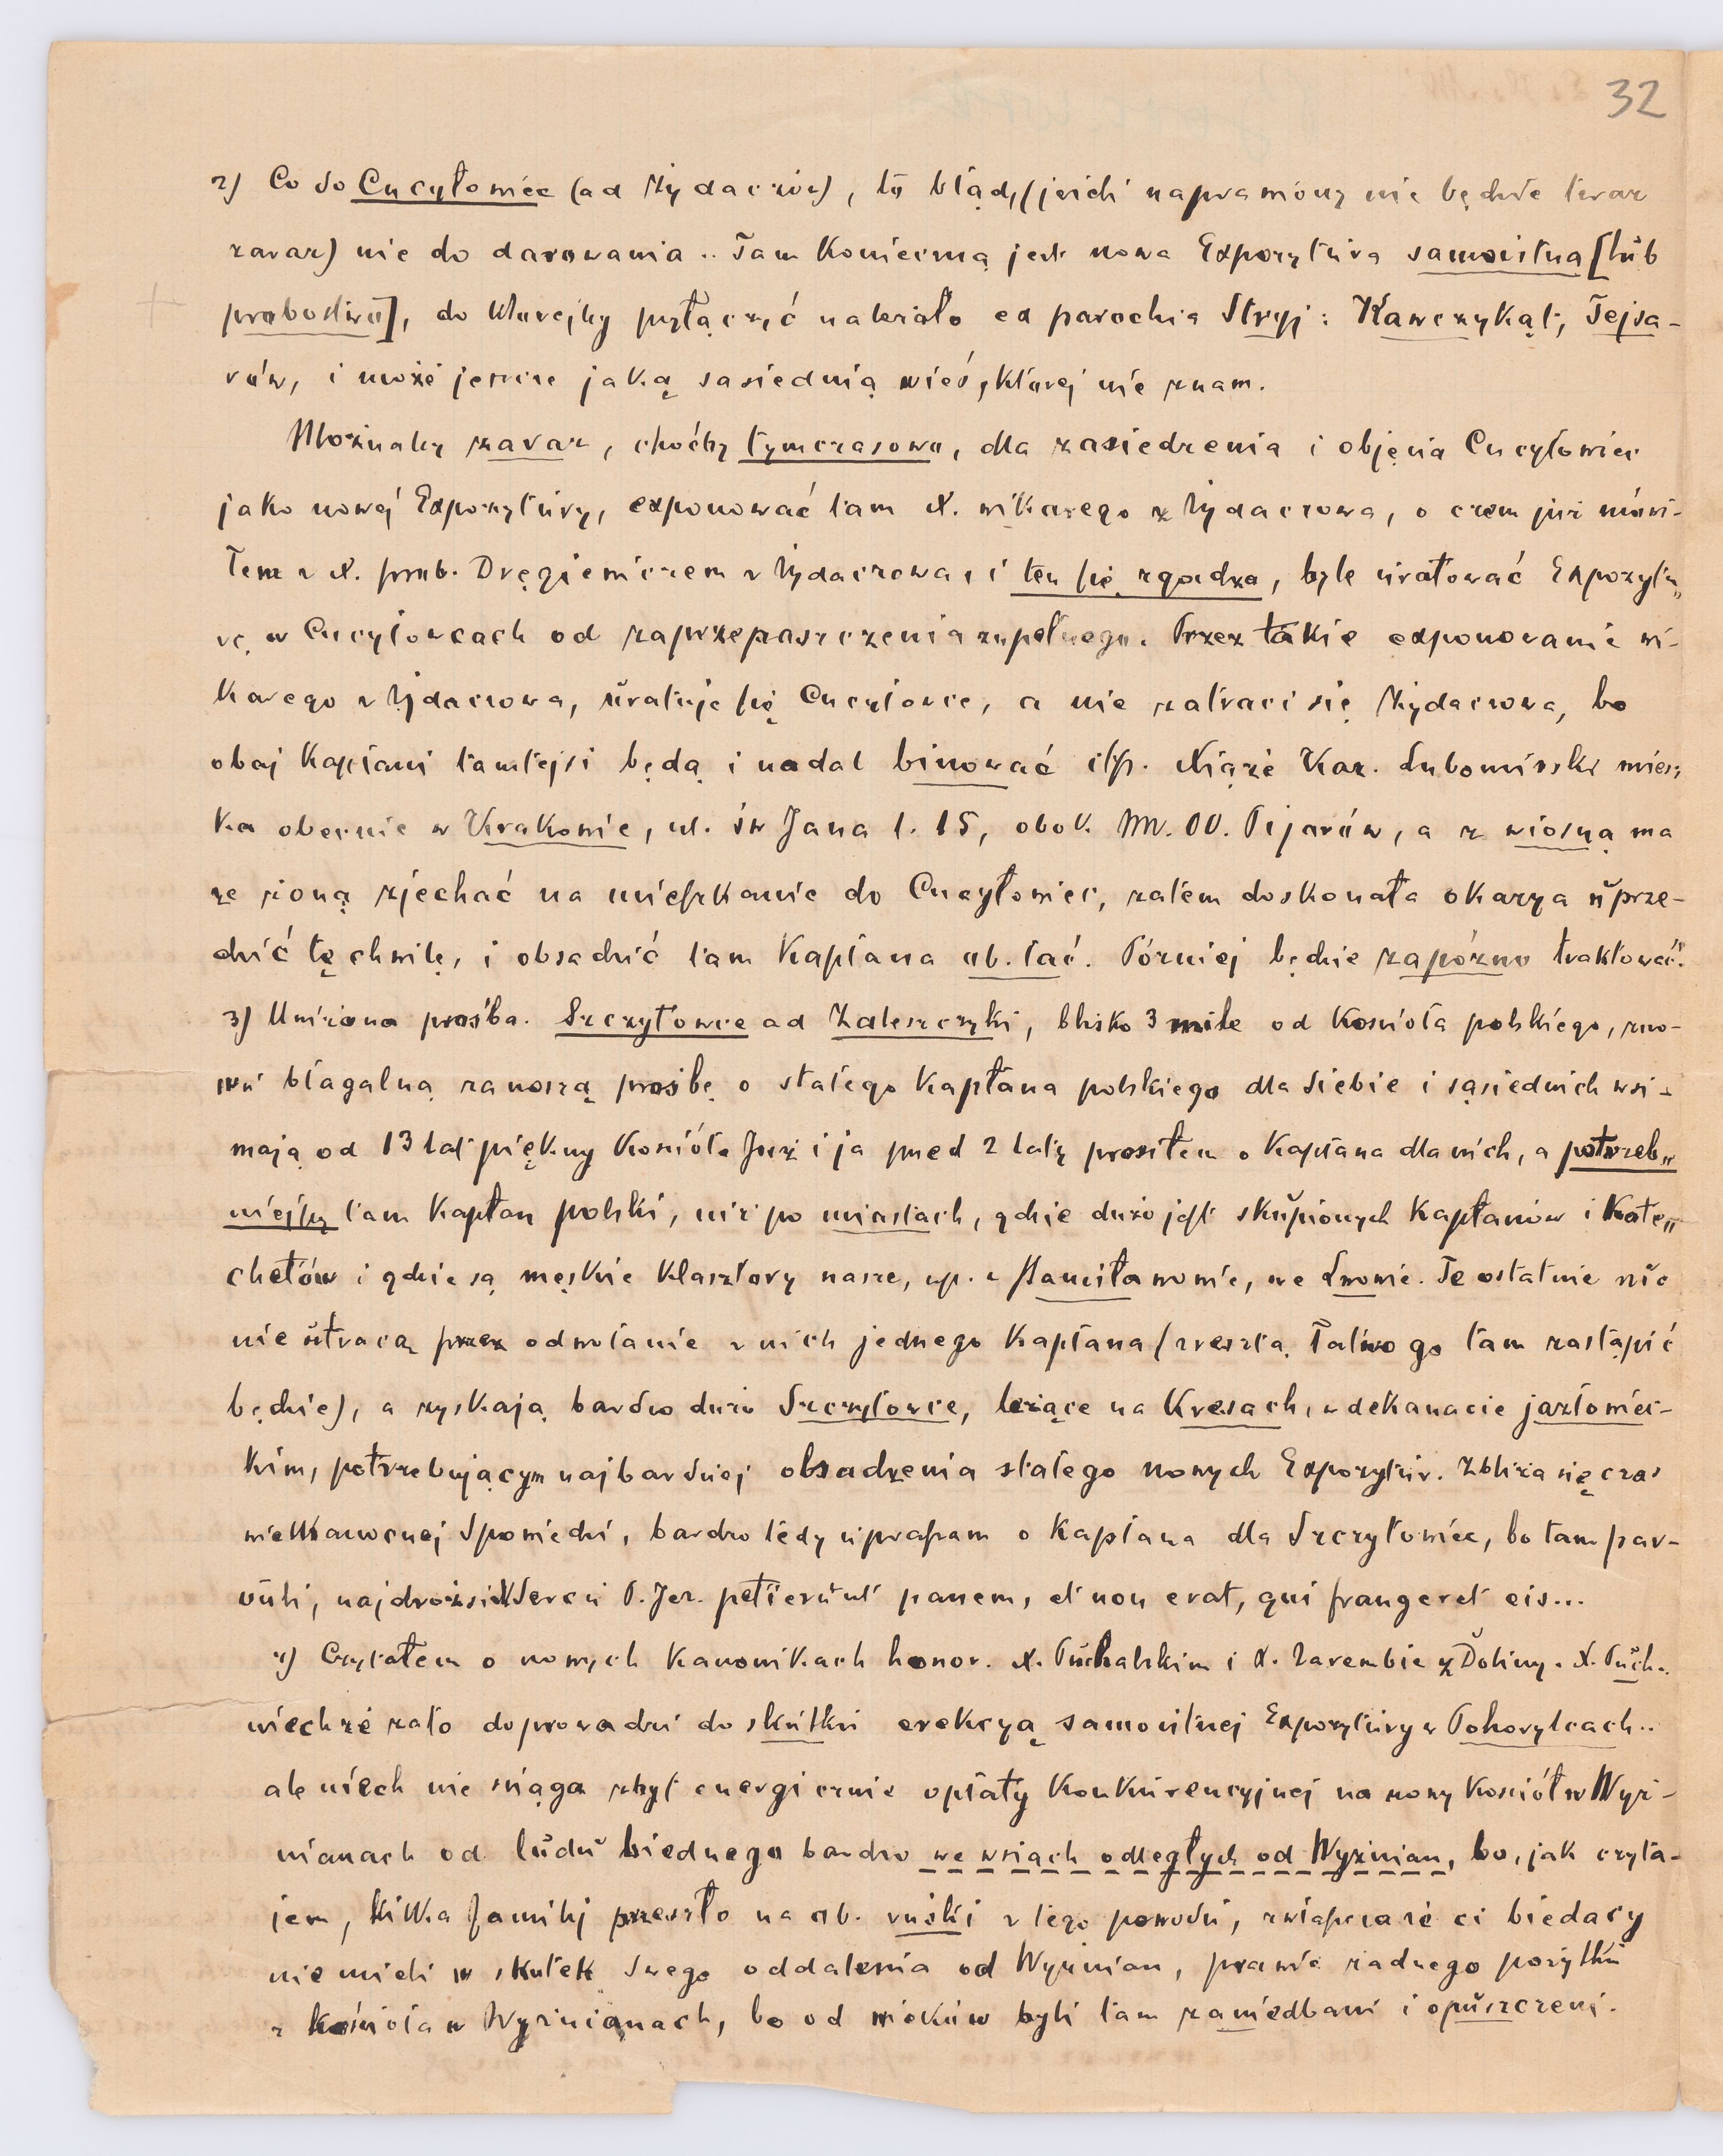 32
2) Co do Cucyłowiec (ad Żydaczów), to błąd, (jeśli naprawiony nie będzie teraz
zaraz) nie do darowania.. Tam konieczną jest nowa Expozytura samoistna [lub
probostwo], do której by przyłączyć należało ex parochia Stryj: Kawczykąt, Tejsa-
rów, i może jeszcze jaką sąsiednią wieś, której nie znam.
Możnaby zaraz, choćby tymczasowo, dla zasiedzenia i objęcia Cucyłowiec
jako nowej Expozytury, exponować tam X. wikarego z Żydaczowa, o czem już mówi-
łem z X. prob. Dręgiewiczem z Żydaczowa, i ten się zgadza, byle uratować Expozytu„
rę w Cucyłowcach od zaprzepaszczenia zupełnego. Przez takie exponowanie wi-
karego z Żydaczowa, uratuje się Cucyłowce, a nie zatraci się Żydaczowa, bo
obaj kapłani tamtejsi będą i nadal binować itp. Xiążę Kaz. Lubomirski miesz
ka obecnie w Krakowie, ul. św Jana l. 15, obok MM. OO. Pijarów, a z wiosną ma
ze żoną zjechać na mieszkanie do Cucyłowiec, zatem doskonała okazya uprze-
dzić tę chwilę, i obsadzić tam kapłana ob. łać. Później będzie zapóźno traktować.
3) Uniżona prośba. Szczytowce ad Zaleszczyki, blisko 3 mile od kościoła polskiego, zno-
wu błagalną zanoszą prośbę o stałego kapłana polskiego dla siebie i sąsiednich wsi -
mają od 13 lat piękny kościół. Już i ja przed 2 laty prosiłem o kapłana dla nich, a potrzeb„
niejszy tam kapłan polski, niż po miastach, gdzie dużo jest skupionych kapłanów i kate„
chetów i gdzie są męskie klasztory nasze, np. w Stanisławowie, we Lwowie. Te ostatnie nic
nie utracą przez odwołanie z nich jednego kapłana (zresztą łatwo go tam zastąpić
będzie), a zyskają bardzo dużo Szczytowce, leżące na Kresach, w dekanacie jazłowiec-
kim, potrzebującym najbardziej obsadzenia stałego nowych Expozytur. Zbliża się czas
wielkanocnej Spowiedzi, bardzo tedy upraszam o kapłana dla Szczytowiec, bo tam par-
vuli, najdrożsi Sercu P. Jez. petierunt panem, et non erat, qui frangeret eis...
4) Czytałem o nowych kanonikach honor. X. Puchalskim i X. Zarembie z Doliny. X. Puch..
niechże zato doprowadzi do skutku erekcyą samoistnej Expozytury w Pohorylcach..
ale niech nie ściąga zbyt energicznie opłaty konkurencyjnej na nowy kościół w Wyż-
nianach od ludu biednego bardzo we wsiach odległych od Wyżnian, bo, jak czyta-
łem, kilka familij przeszło na ob. ruski z tego powodu, zwłaszcza że ci biedacy
nie mieli w skutek swego oddalenia od Wyżnian, prawie żadnego pożytku
z kościoła w Wyżnianach, bo od wieków byli tam zaniedbani i opuszczeni.